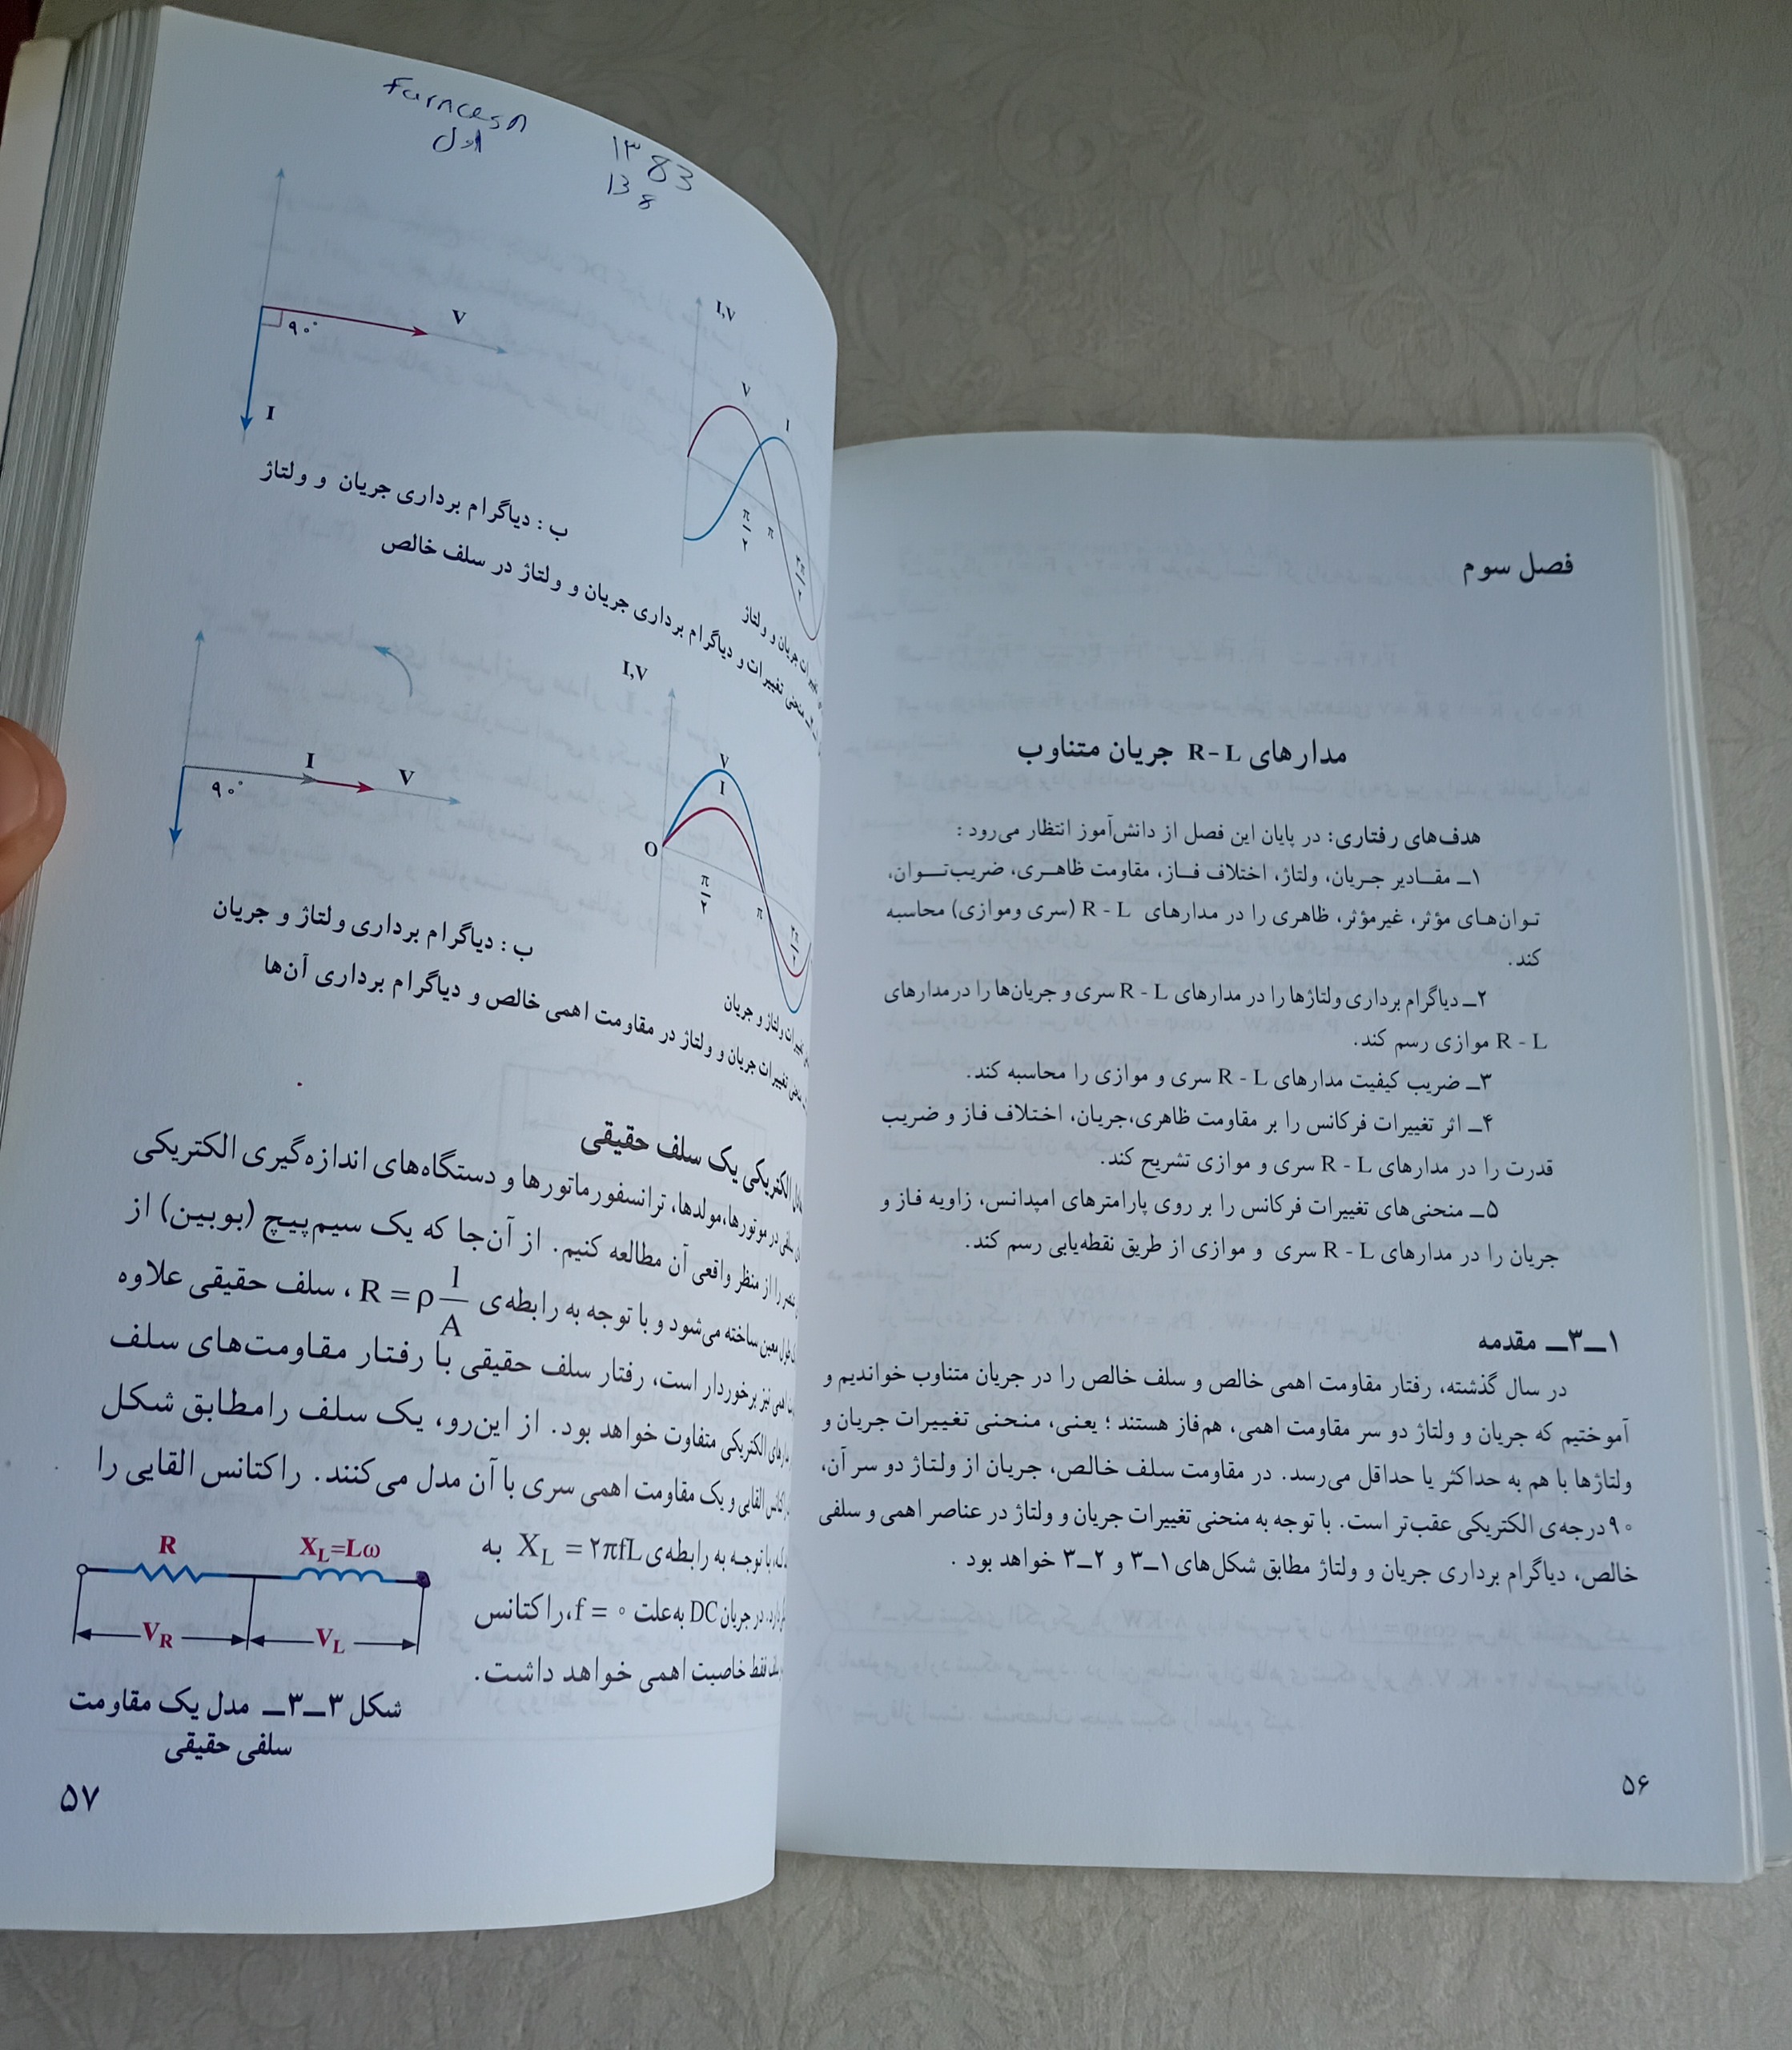 فصل سوم
مدارهای R-L جریان متناوب
هدف‌های رفتاری: در پایان این فصل از دانش‌آموز انتظار می‌رود :
۱ــ مقادیر جریان، ولتاژ، اختلاف فاز، مقاومت ظاهری، ضریب‌توان،
توان‌های مؤثر، غیرمؤثر، ظاهری را در مدارهای R - L (سری وموازی) محاسبه
کند.
۲ــ دیاگرام برداری ولتاژها را در مدارهای R - L سری و جریان‌ها را در مدارهای
R - L موازی رسم کند.
۳ــ ضریب کیفیت مدارهای R - L سری و موازی را محاسبه کند.
۴ــ اثر تغییرات فرکانس را بر مقاومت ظاهری،جریان، اختلاف فاز و ضریب
قدرت را در مدارهای R - L سری و موازی تشریح کند.
۵ــ منحنی‌های تغییرات فرکانس را بر روی پارامترهای امپدانس، زاویه فاز و
جریان را در مدارهای R - L سری و موازی از طریق نقطه‌یابی رسم کند.
۱ــ۳ــ مقدمه
در سال گذشته، رفتار مقاومت اهمی خالص و سلف خالص را در جریان متناوب خواندیم و
آموختیم که جریان و ولتاژ دو سر مقاومت اهمی، هم‌فاز هستند ؛ یعنی، منحنی تغییرات جریان و
ولتاژها با هم به حداکثر یا حداقل می‌رسد. در مقاومت سلف خالص، جریان از ولتاژ دو سر آن،
۹۰ درجه‌ی الکتریکی عقب‌تر است. با توجه به منحنی تغییرات جریان و ولتاژ در عناصر اهمی و سلفی
خالص، دیاگرام برداری جریان و ولتاژ مطابق شکل‌های ۱ــ۳ و ۲ــ۳ خواهد بود .
۵۶
اول
۱۳ 83
13 8
I,V
V
I
π/۲
π
۹۰°
V
I
ات جریان و ولتاژ
ب : دیاگرام برداری جریان و ولتاژ
ــ منحنی تغییرات و دیاگرام برداری جریان و ولتاژ در سلف خالص
I,V
V
I
O
π/۲
π
۹۰°
I
V
تغییرات ولتاژ و جریان
ب : دیاگرام برداری ولتاژ و جریان
تغییرات جریان و ولتاژ در مقاومت اهمی خالص و دیاگرام برداری آن‌ها
الکتریکی یک سلف حقیقی
سلفی در موتورها،مولدها، ترانسفورماتورها و دستگاه‌های اندازه‌گیری الکتریکی
را از منظر واقعی آن مطالعه کنیم. از آن‌جا که یک سیم‌پیچ (بوبین) از
طول معین ساخته می‌شود و با توجه به رابطه‌ی R = ρ l/A ، سلف حقیقی علاوه
اهمی نیز برخوردار است، رفتار سلف حقیقی با رفتار مقاومت‌های سلف
الکتریکی متفاوت خواهد بود. از این‌رو، یک سلف رامطابق شکل
القایی و یک مقاومت اهمی سری با آن مدل می‌کنند. راکتانس القایی را
با توجه به رابطه‌ی XL = ۲πfL به
در جریان DC به‌علت f = ۰،راکتانس
فقط خاصیت اهمی خواهد داشت.
R
XL=Lω
VR
VL
شکل ۳ــ۳ــ مدل یک مقاومت
سلفی حقیقی
۵۷